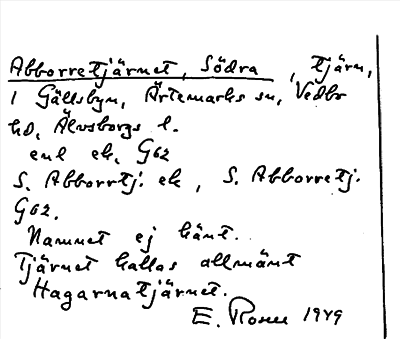 Abborretjärnet, Södra, tjärn,
i Gällsbyn, Ärtemarks sn, Vedbo
hd, Älvsborgs l.
enl ek, G62
S. Abborrtj. ek, S. Abborretj.
G62.
Namnet ej känt.
Tjärnet kallas allmänt
Hagarnatjärnet.
E. Rosell 1949